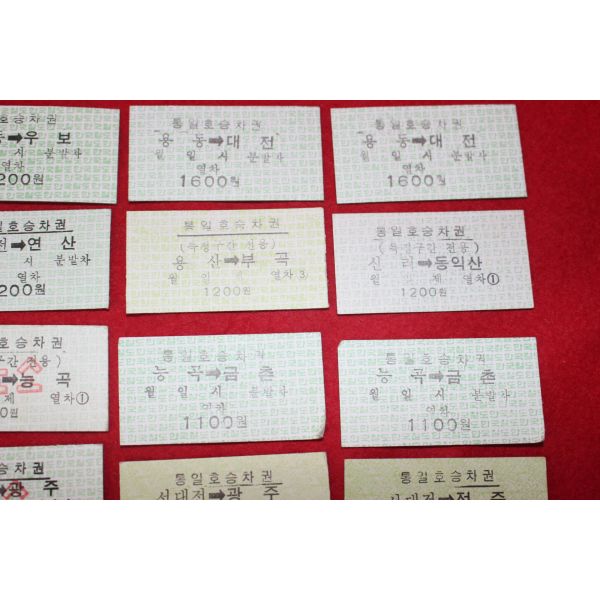 승차권
➡우보
월 시 분발차
열차
200원
통일호승차권
용동➡대전
월 일 시 분발차
열차
1600원
통일호승차권
용동➡대전
월 일 시 분발차
열차
1600원
일호승차권
전➡연산
시 분발차
열차
200원
통일호승차권
(특정구간 전용)
용산➡부곡
월 일 제 열차③
1200원
통일호승차권
(특정구간 전용)
신리➡동익산
월 일 제 열차①
1200원
승차권
구간 전용)
➡능곡
제 열차①
0원
통일호승차권
능곡➡금촌
월 일 시 분발차
열차
1100원
통일호승차권
능곡➡금촌
월 일 시 분발차
열차
1100원
호승차권
➡광주
통일호승차권
서대전➡광주
통일호승차권
서대전➡전주